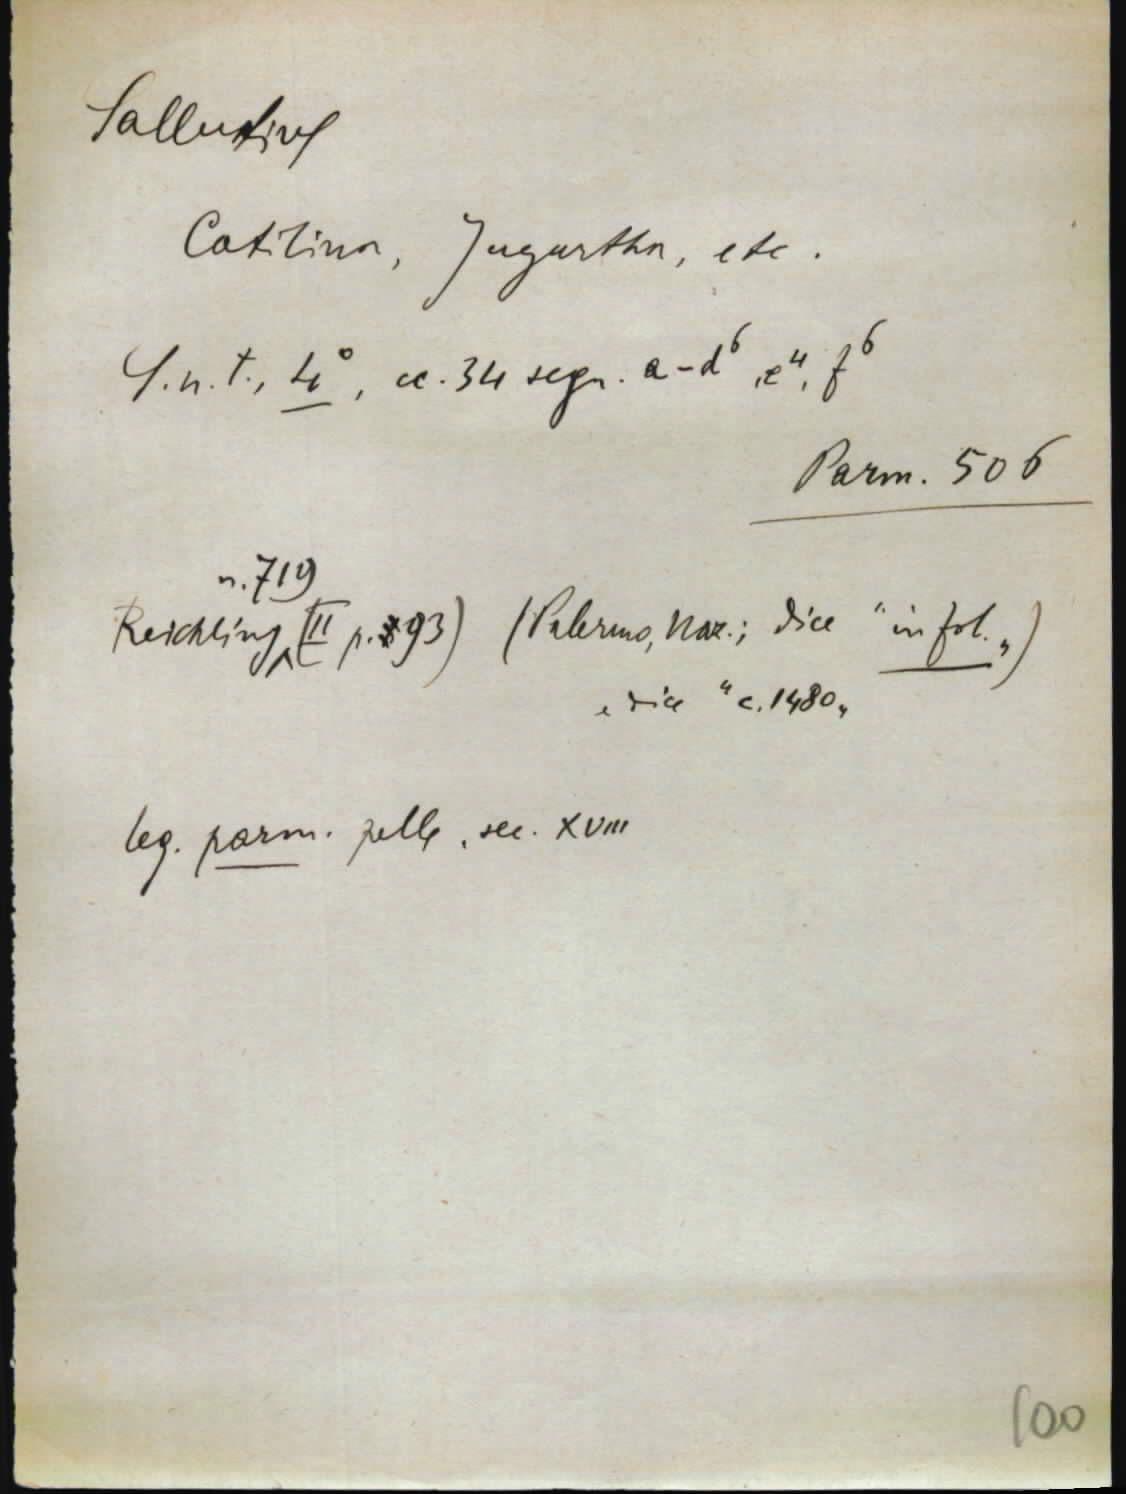 Sallustius
Catilina, Jugurtha, etc.
S.n.t., 4°, cc. 34 segn. a-d⁶, e⁴, f⁶
Parm. 506
n. 719
Reichling (II p. 93) (Palermo, Naz.; dice "in fol.„)
e dice "c. 1480„
leg. parm. pelle, sec. XVIII
100